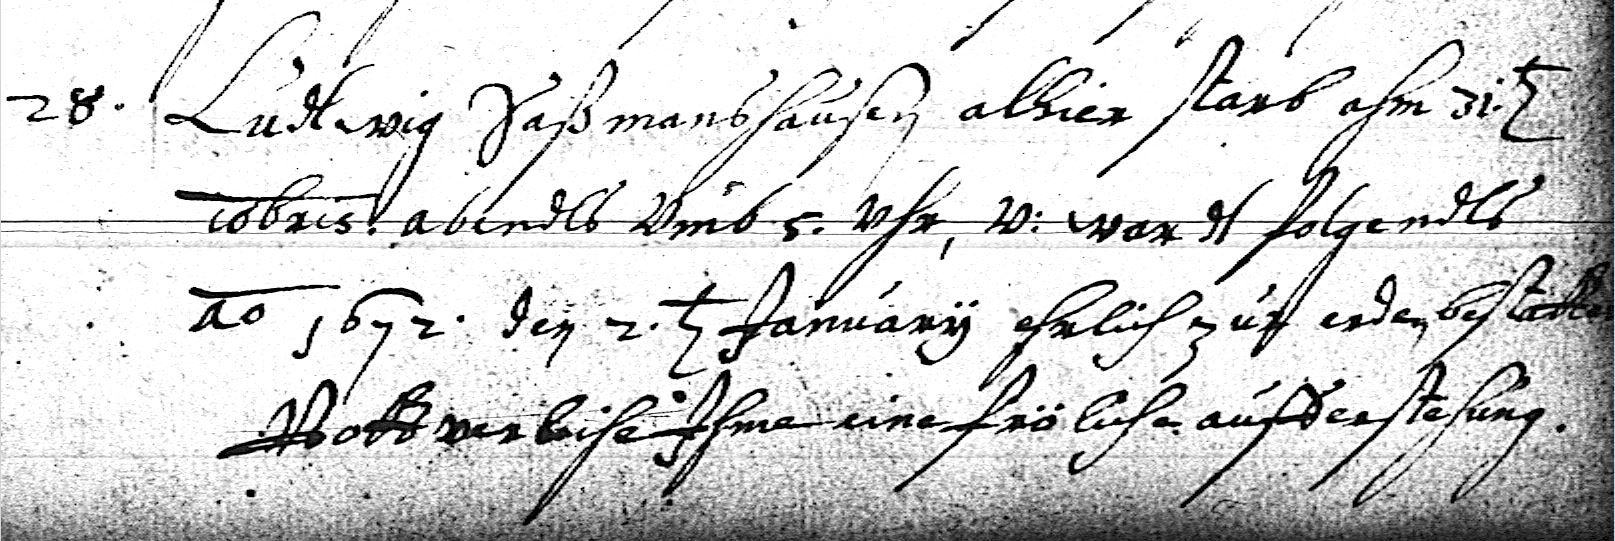 28. Ludtwig Saßmanshausen alhier starb ahm 31.t
10bris. abendts Umb 5. Uhr, v: wardt folgendts
ao 1672. den 2.t January ehrlich zur erden bestattet
Gott verleihe Ihme eine fröliche aufferstehung.